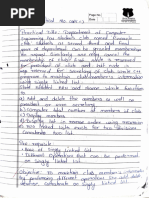 Page No.
Date
Practical No. 02
Practical Title: Department of Computer
Engineering has student's club named
club. Students of second, third and final
year of department can be granted membership
on request. Similarly one may cancel the
membership of club. First node is reserved
for president of club and last node is
reserved for secretary of club. Write
program to maintain club member's information
using singly linked list
Store student PRN and Name. Write function
to
a) Add and delete the members as well as
president or even secretary.
b) Compute total number of members of club
c) Display members
d) Display list in reverse order using recursion
e) Two linked lists exists for two divisions.
Concatenate
Pre-requisite
• Basic of Singly Linked List
• Different Operations that can be performed
on Singly linked list
Objective: To maintain club member's information
by performing different operations like add,
delete, concatenate on Singly linked list